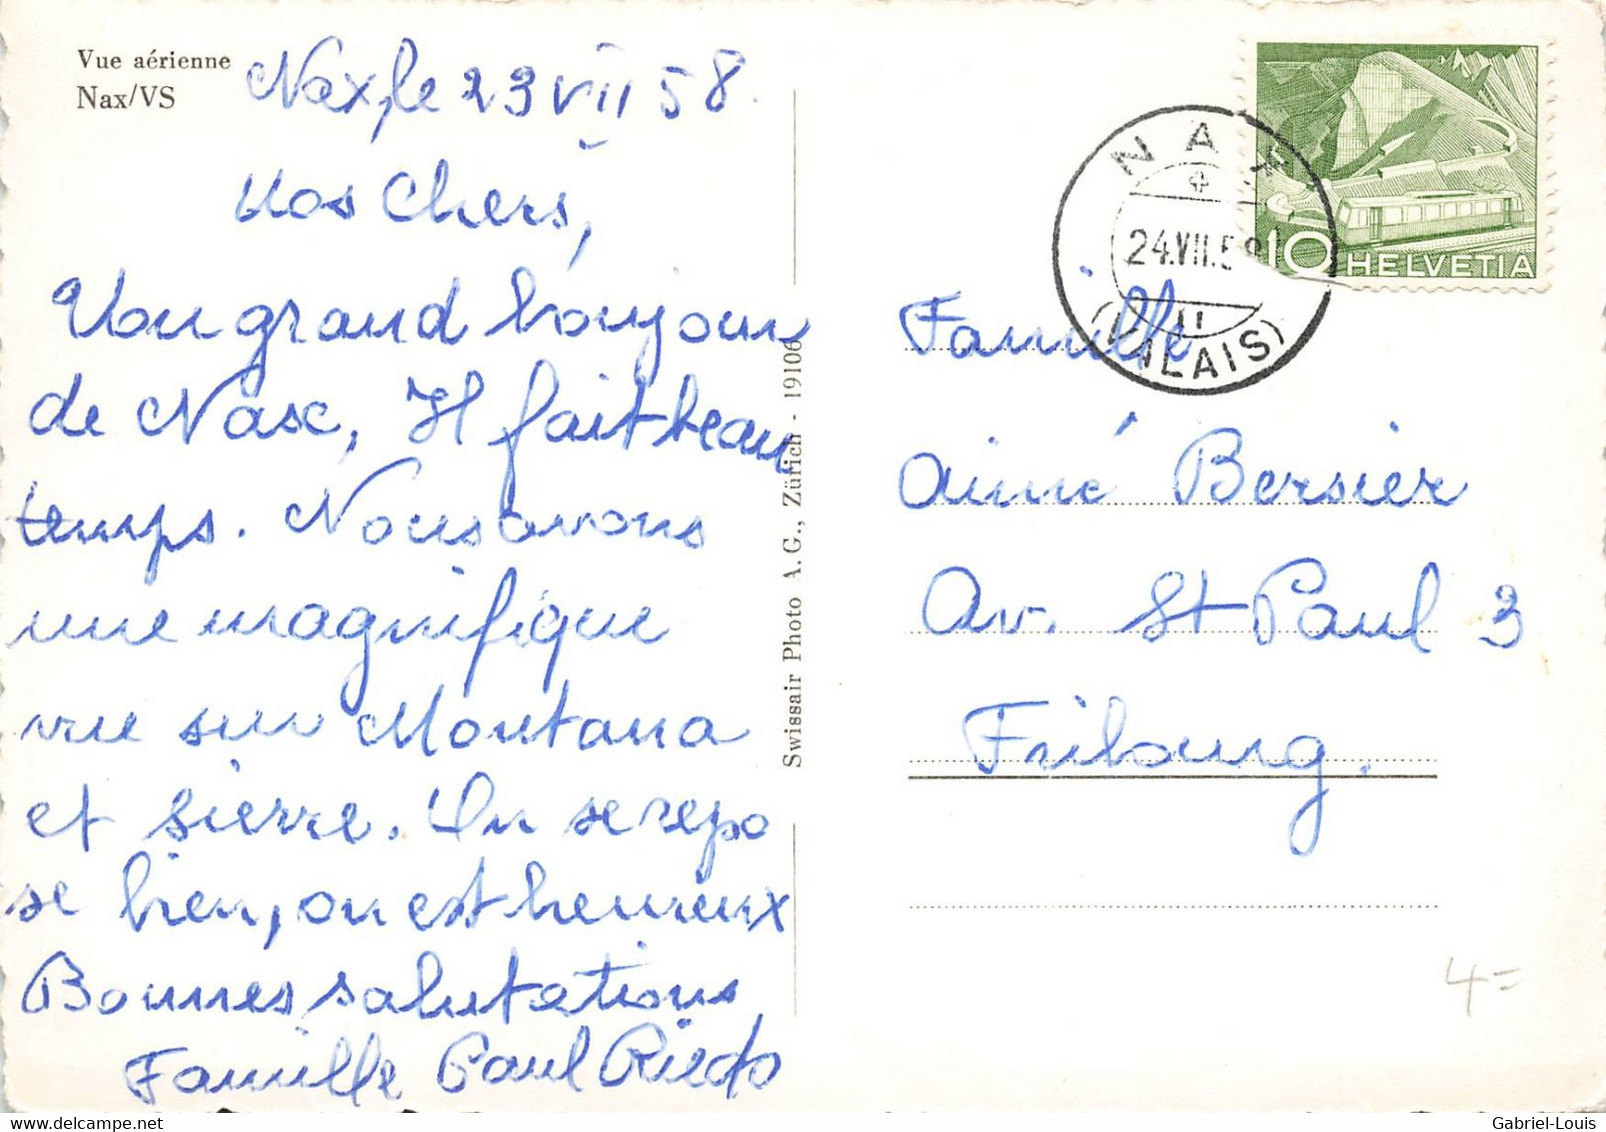 Vue aérienne
Nax/VS
Nax, le 23 VII 58.
Nos Chers,
Un grand bonjour
de Nax, Il fait beau
temps. Nous avons
une magnifique
vue sur Montana
et Sierre. On se repo
se bien, on est heureux
Bonnes salutations
Famille Paul Riedo
Swissair Photo A. G., Zürich - 19106
NAX
24.VII.58
(VALAIS)
10 HELVETIA
Famille
Aimé Bersier
Av. St Paul 3
Fribourg.
4-
Gabriel-Louis